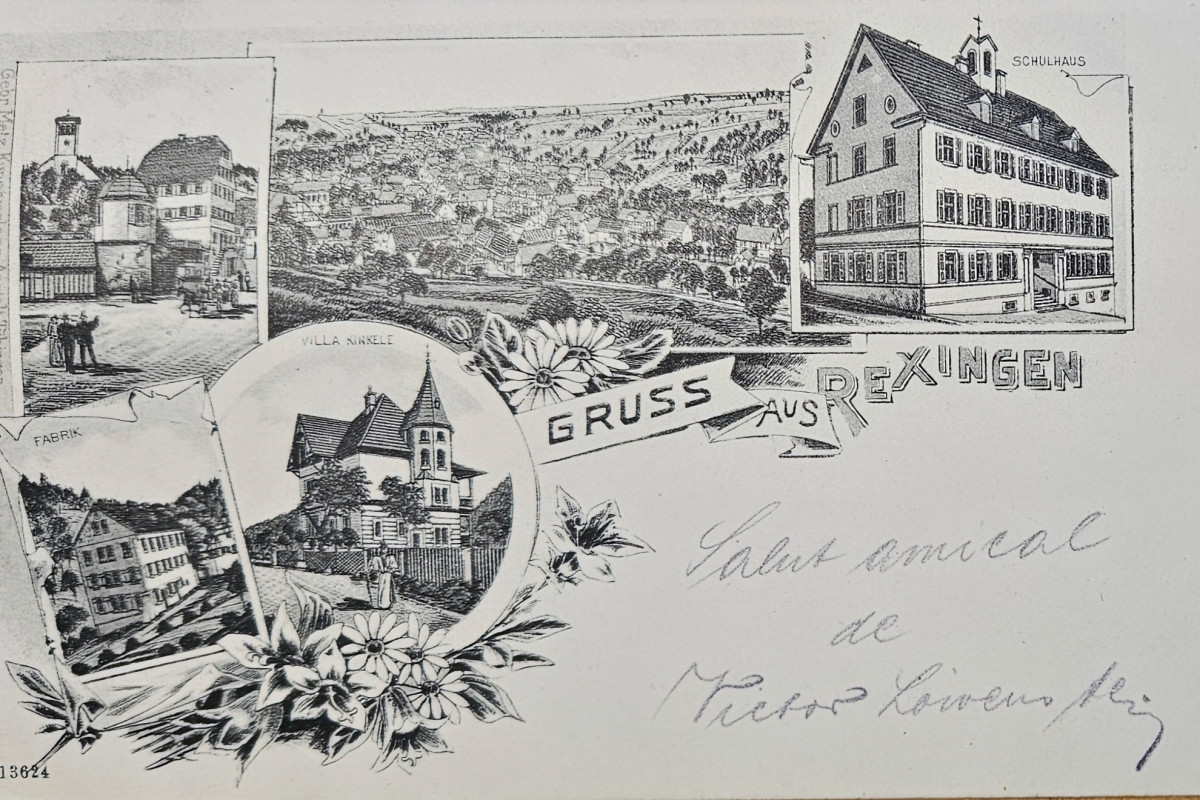 SCHULHAUS
VILLA KINKELE
GRUSS AUS REXINGEN
FABRIK
Salut amical
de
Victor Löwenstein
13624